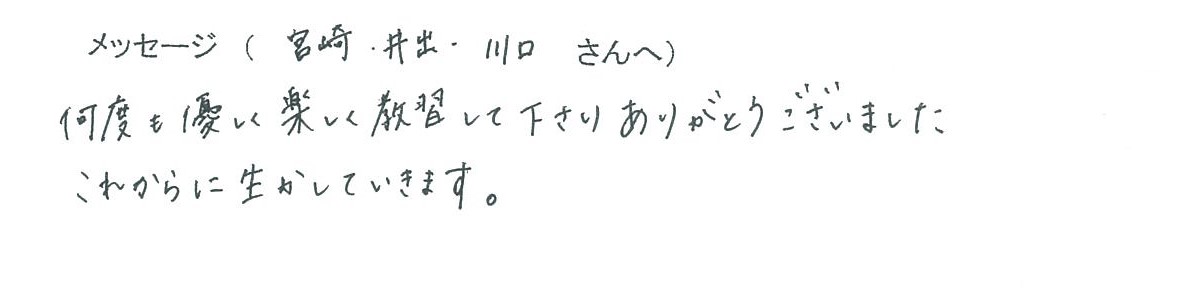 メッセージ（ 宮崎・井出・川口 さんへ）
何度も優しく楽しく教習して下さりありがとうございました
これからに生かしていきます。